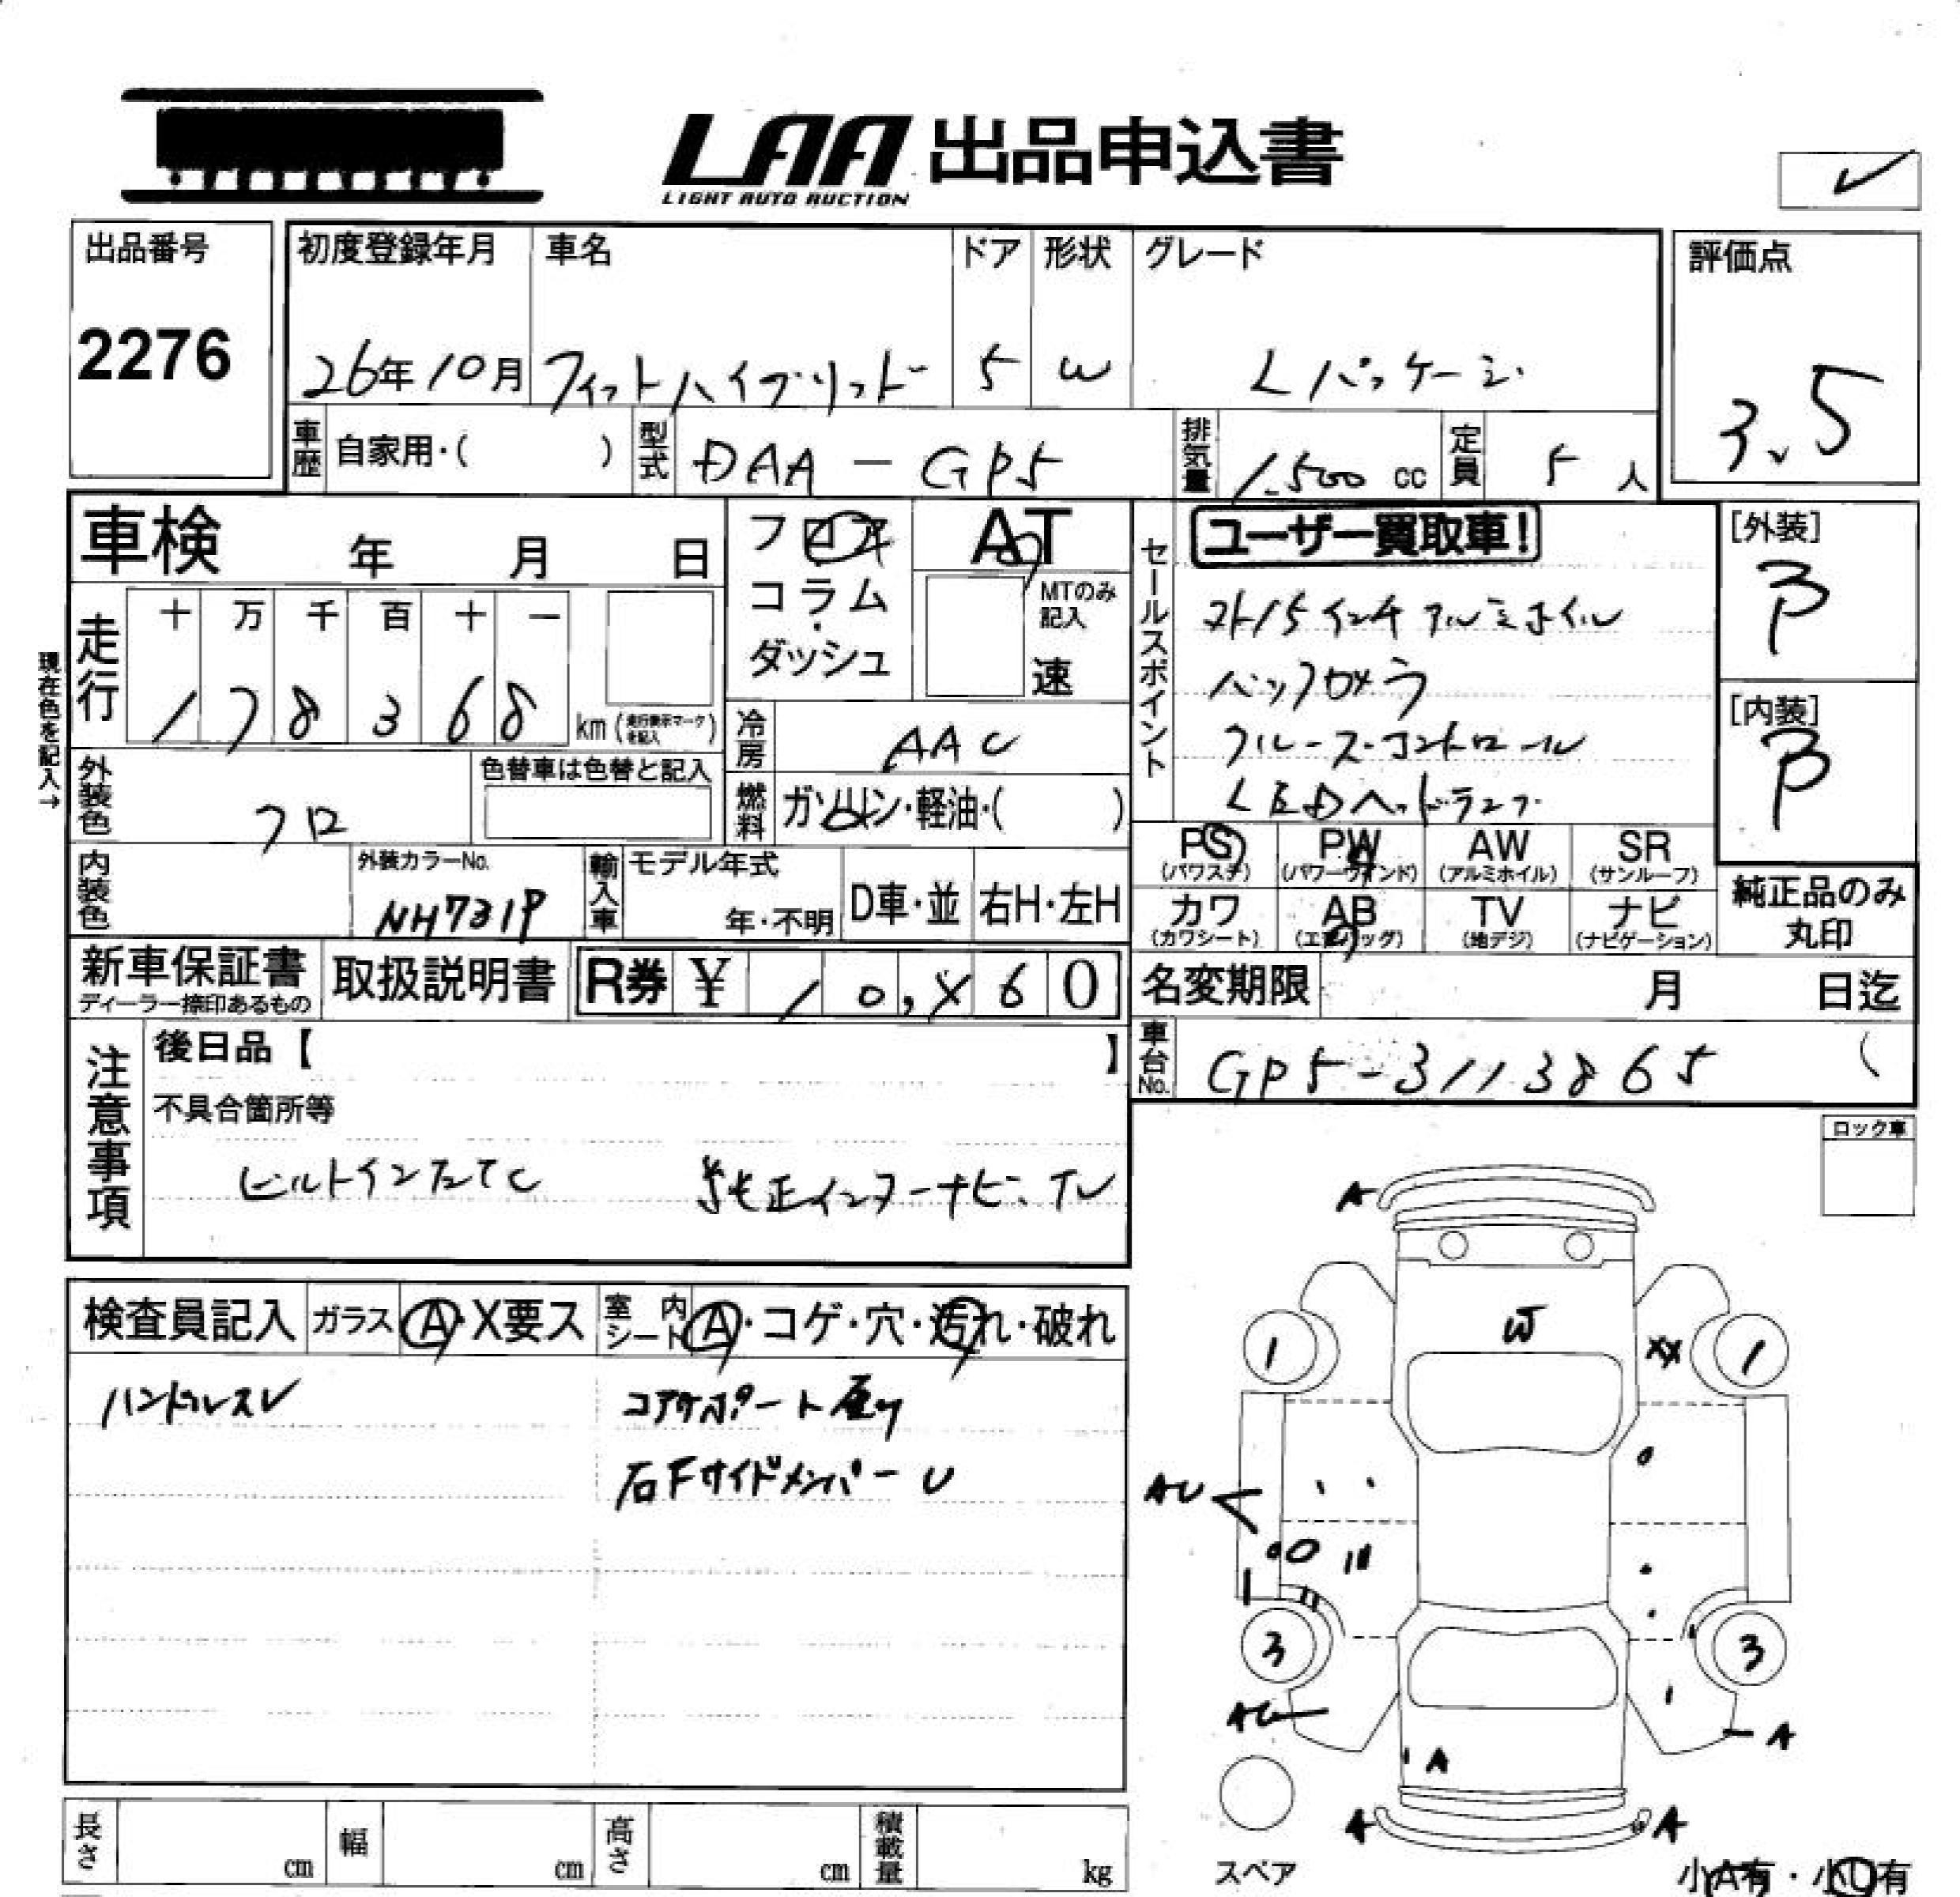 LAA 出品申込書
LIGHT AUTO AUCTION
レ
出品番号
2276
初度登録年月
26年10月
車名
フィットハイブリッド
ドア
5
形状
W
グレード
Lパッケージ
評価点
3.5
車歴 自家用・( )
型式 DAA-GP5
排気量 1.500 cc
定員 5 人
車検 年 月 日
フロア
コラム
・
ダッシュ
AT
MTのみ
記入
速
現在色を記入→
走行
十 万 千 百 十 一
1 7 8 3 6 8
km (走行表示マークを記入)
冷房 AAC
外装色 クロ
色替車は色替と記入
燃料 ガソリン・軽油・( )
内装色
外装カラーNo.
NH731P
輸入車
モデル年式
年・不明
D車・並
右H・左H
セールスポイント
ユーザー買取車!
スト15インチアルミホイル
バックカメラ
クルーズ・コントロール
LEDヘッドランプ
[外装]
B
[内装]
B
PS
(パワステ)
PW
(パワーウィンド)
AW
(アルミホイル)
SR
(サンルーフ)
カワ
(カワシート)
AB
(エアバッグ)
TV
(地デジ)
ナビ
(ナビゲーション)
純正品のみ
丸印
新車保証書
ディーラー捺印あるもの
取扱説明書
R券 ¥ 1 0,X 6 0
名変期限 月 日迄
車台No. GP5-3113865
注意事項
後日品【 】
不具合箇所等
ビルトインETC 純正インターナビ、TV
ロック車
検査員記入
ガラス A・X要ス
室内シート A・コゲ・穴・汚れ・破れ
ハンドルスレ
コアサポート
右FサイドメンバーU
A
W
1
XX
1
AU
3
3
A
A
A
A
スペア
小A有・小U有
長さ cm
幅 cm
高さ cm
積載量 kg